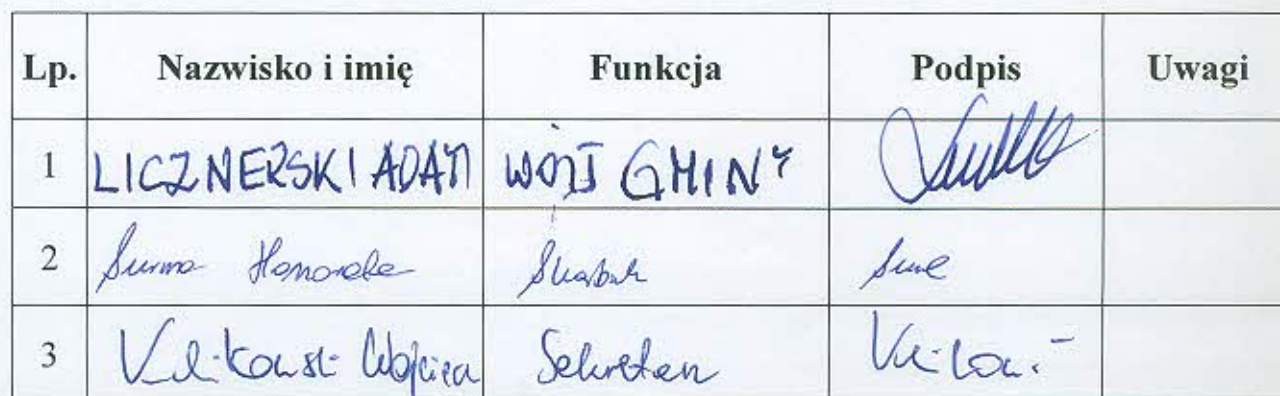 Lp. Nazwisko i imię Funkcja Podpis Uwagi
1 LICZNERSKI ADAM WÓJT GMINY
2 Surma Honorata Skarbnik
3 Wojciech Sekretarz